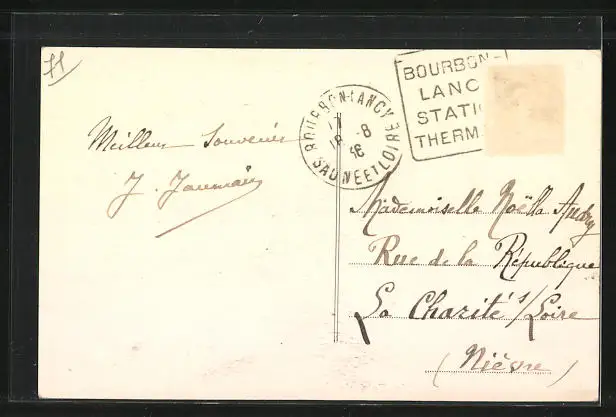 Meilleur Souvenir
J.
BOURBON-LANCY
18-8
36
SAÔNE ET LOIRE
BOURBON-L
LANC
STATIO
THERM
Mademoiselle Noëlla Audry
Rue de la République
La Charité s/Loire
(Nièvre)